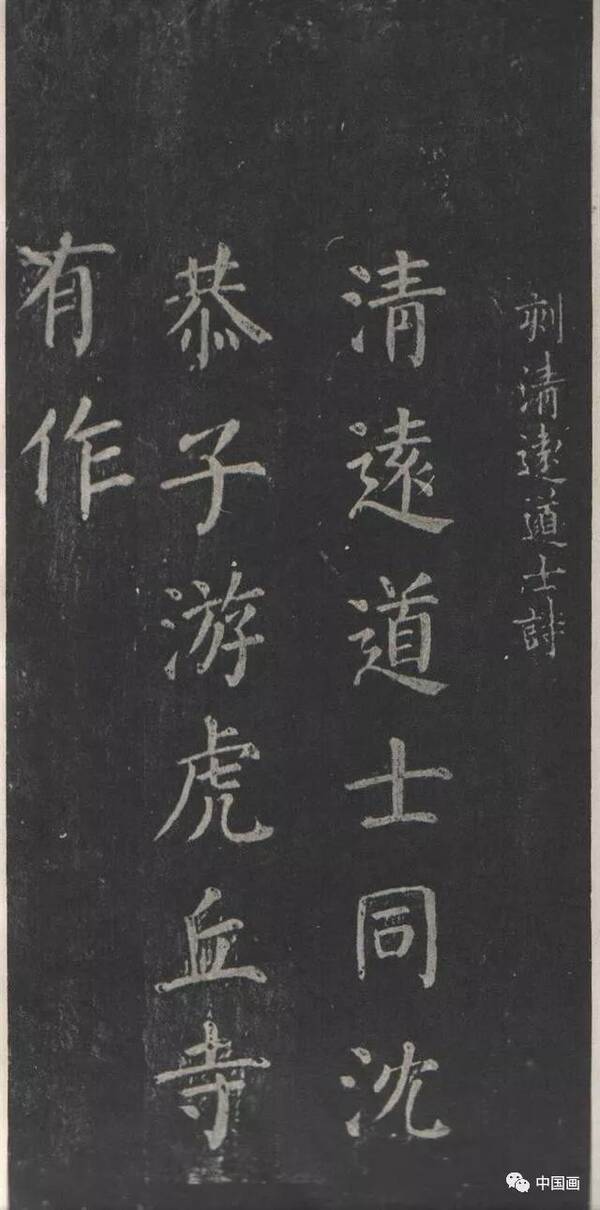 刻清遠道士詩
清遠道士同沈
恭子游虎丘寺
有作
中国画